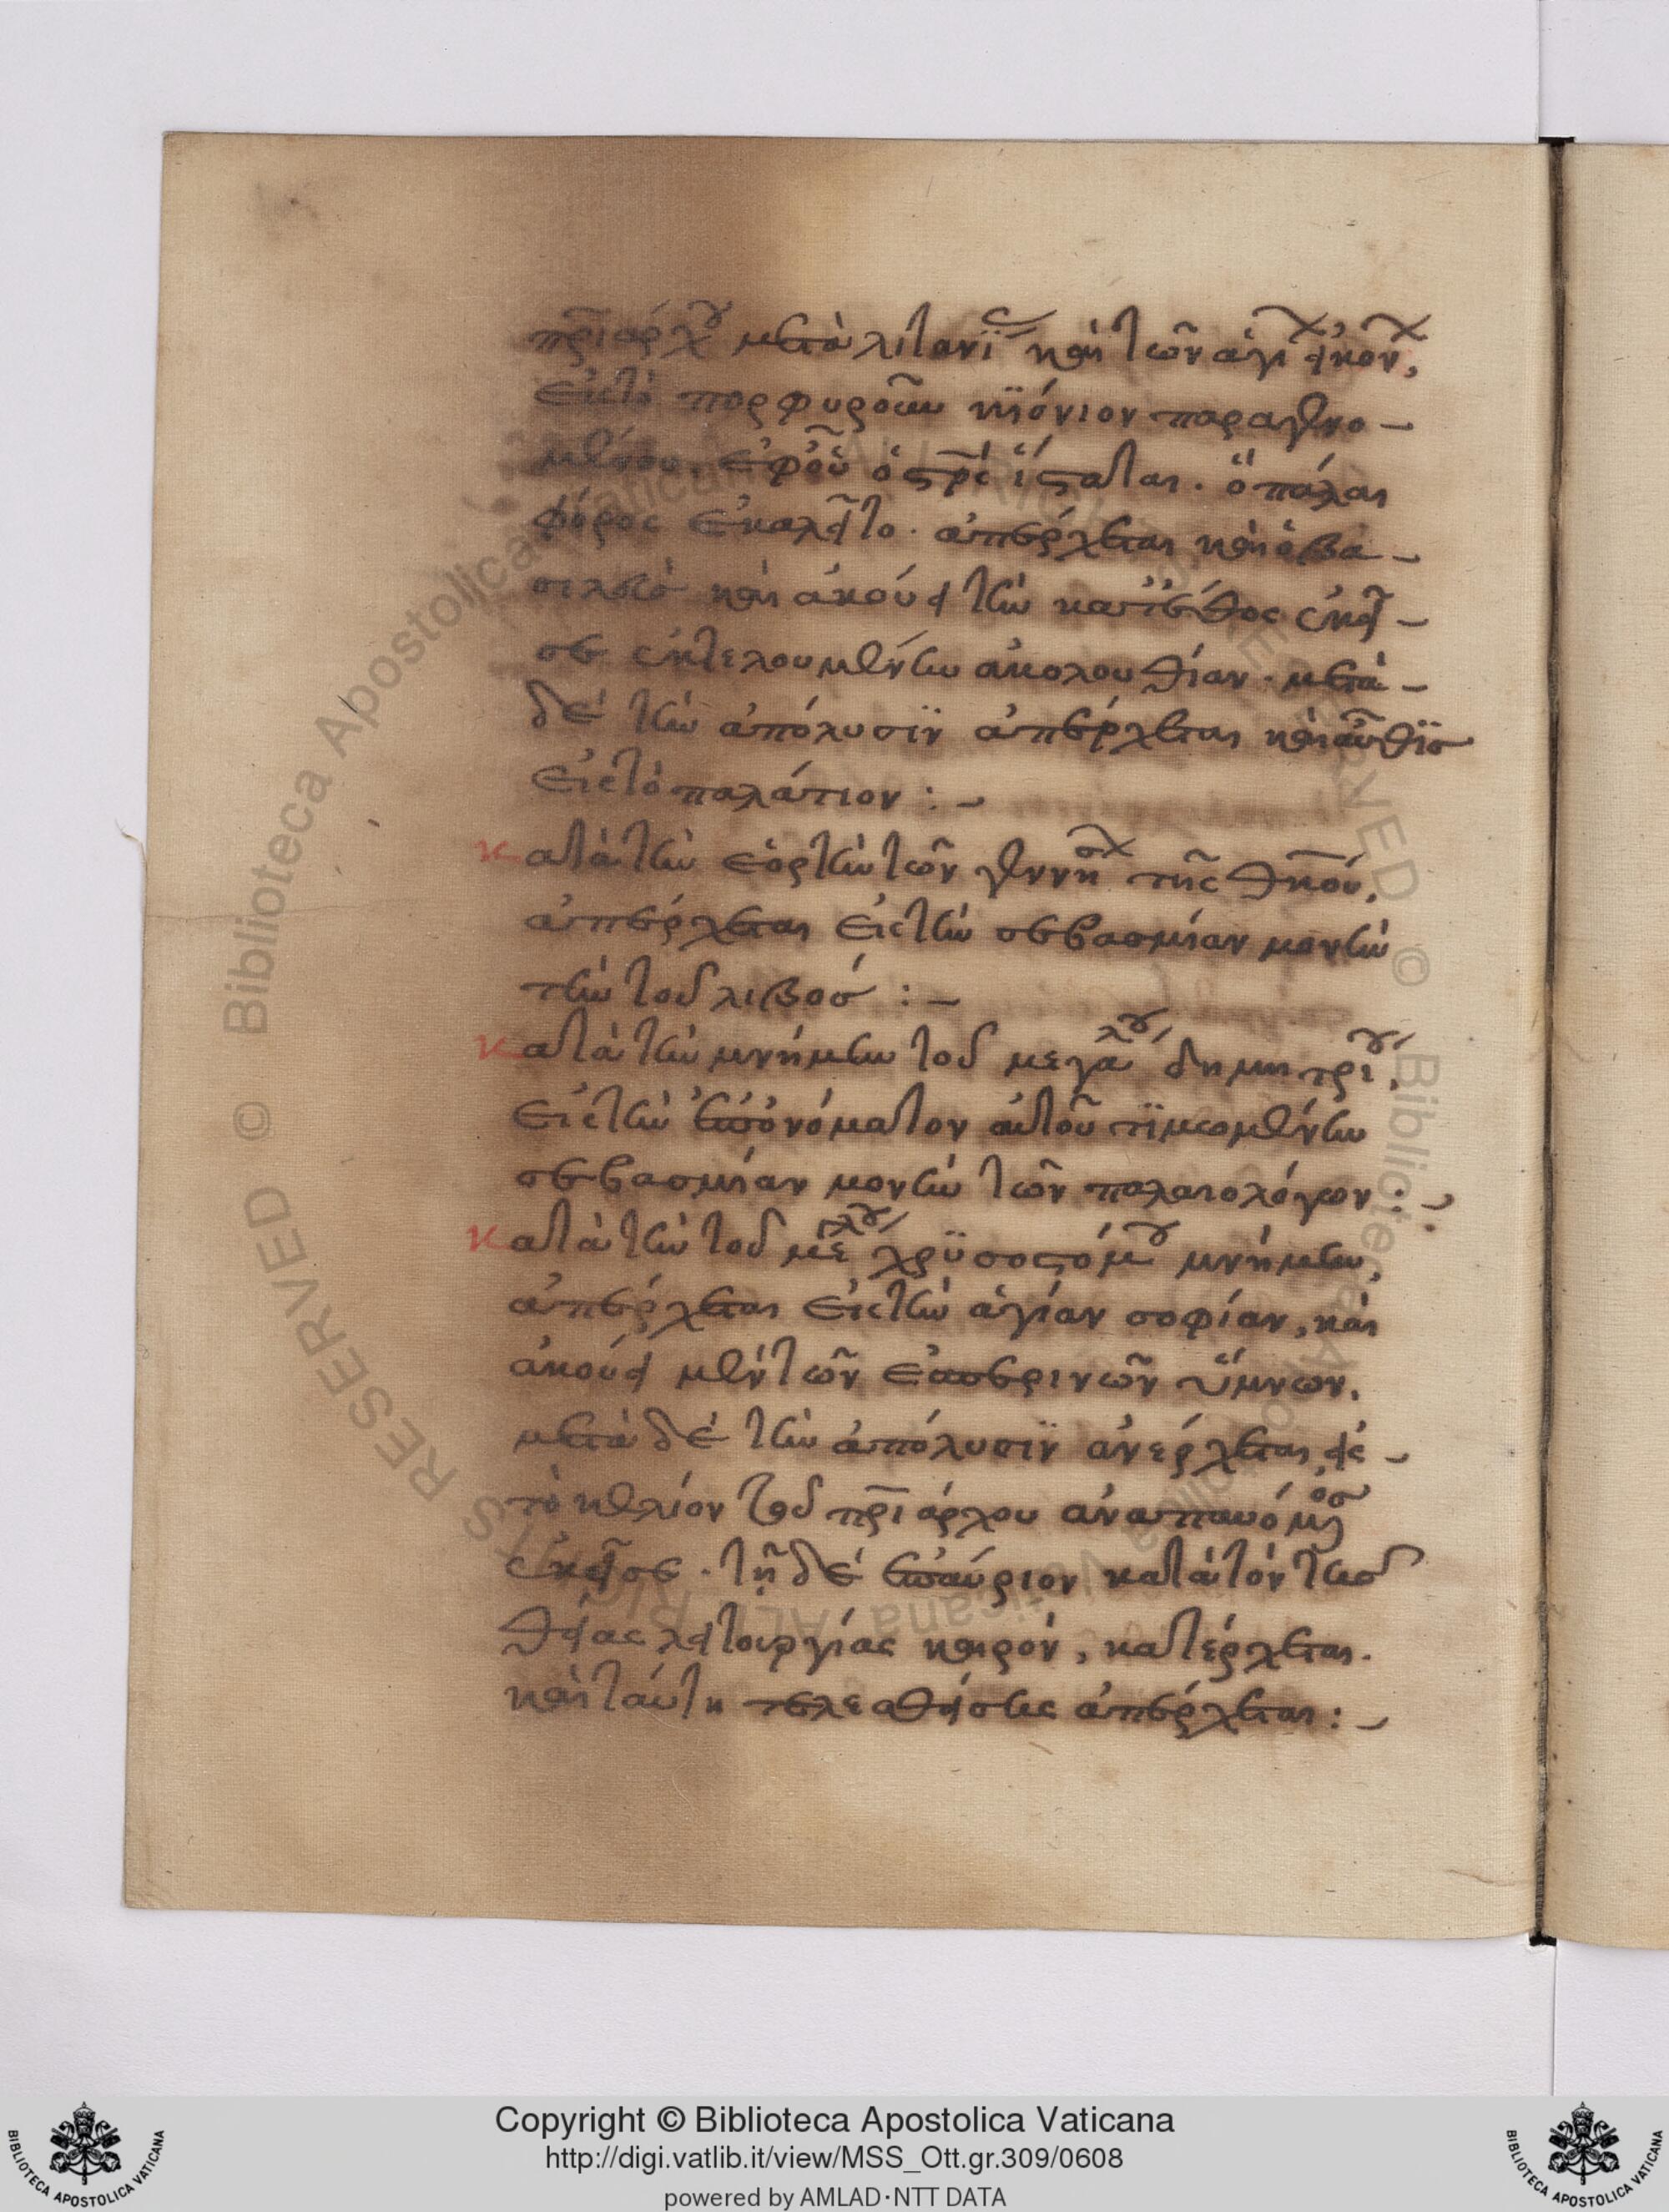 πρ̅ιάρχου μετὰ λιτανΐας καὶ τῶν ἁγίων εἰκόνων,
εἰς τὸ πορφυροῦν κϊόνιον παραγενο-
μένου. ἐφ' οὗ ὁ στ̅ρὸς ἵσταται. ὃ πάλαι
φόρος ἐκαλεῖτο. ἀπέρχεται καὶ ὁ βα-
σιλεὺς καὶ ἀκούει τὴν κατ' ἔθος ἐκεῖ-
σε ἐκτελουμένην ἀκολουθίαν. μετὰ
δὲ τὴν ἀπόλυσϊν ἀπέρχεται καὶ αὖθϊς
εἰς τὸ παλάτιον :-
κατὰ τὴν ἑορτὴν τῶν γεννήσων τῆς θ̅κου,
ἀπέρχεται εἰς τὴν σεβασμίαν μονὴν
τὴν τοῦ λιβός :-
κατὰ τὴν μνήμην τοῦ μεγάλου δημητρίου,
εἰς τὴν ἐπ' ὀνόματον αὐτοῦ τϊμωμένην
σεβασμίαν μονὴν τῶν παλαιολόγων :-
κατὰ τὴν τοῦ μεγάλου χρϋσοστόμου μνήμην,
ἀπέρχεται εἰς τὴν ἁγίαν σοφίαν, καὶ
ἀκούει μὲν τῶν ἑσπερινῶν ὕμνων.
μετὰ δὲ τὴν ἀπόλυσϊν ἀνέρχεται εἰς
τὸ κελλίον τοῦ πρ̅ιάρχου ἀναπαυόμενος
ἐκεῖσε. τῇ δὲ ἐπαύριον κατὰ τὸν τῆς
θείας λειτουργίας καιρὸν, κατέρχεται.
καὶ ταύτη τελεσθείσης ἀπέρχεται :-
Copyright © Biblioteca Apostolica Vaticana
http://digi.vatlib.it/view/MSS_Ott.gr.309/0608
powered by AMLAD·NTT DATA